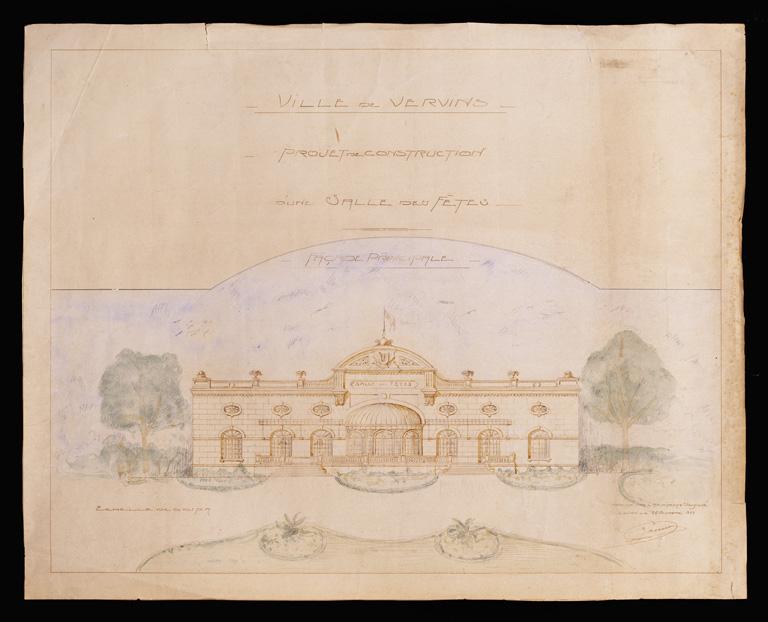 VILLE DE VERVINS
PROJET DE CONSTRUCTION
D'UNE SALLE DES FÊTES
FAÇADE PRINCIPALE
SALLE DES FETES
ECHELLE DE